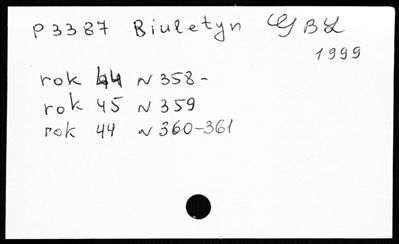 P 3387 Biuletyn GBL
1999
rok 44 N 358-
rok 45 N 359
rok 44 N 360-361